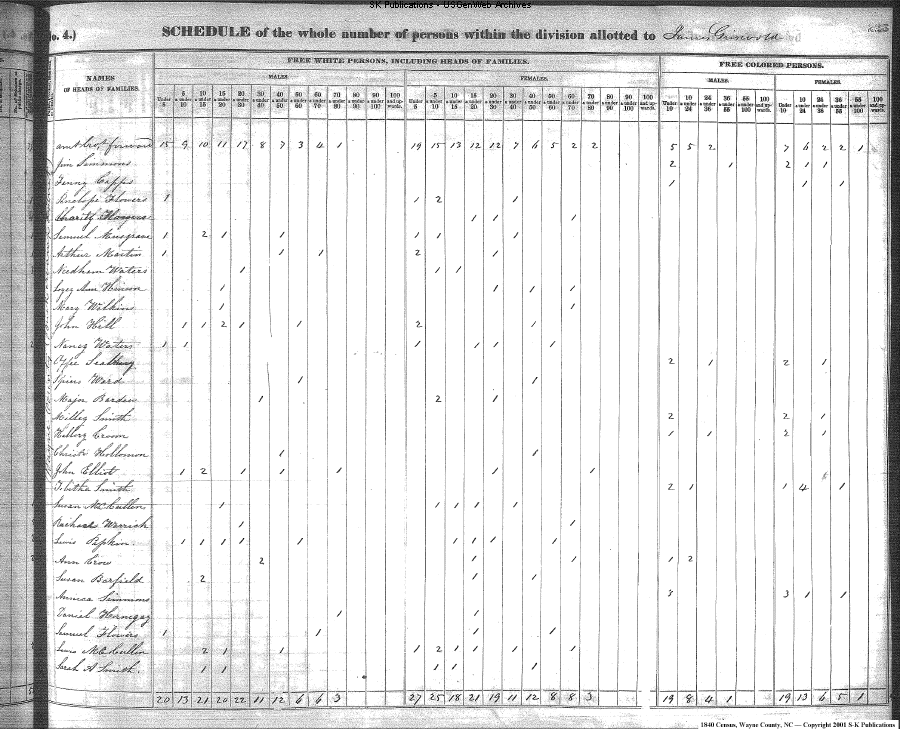 SK Publications - USGenWeb Archives
No. 4.) SCHEDULE of the whole number of persons within the division allotted to
NAMES OF HEADS OF FAMILIES.
FREE WHITE PERSONS, INCLUDING HEADS OF FAMILIES.
FREE COLORED PERSONS.
MALES. FEMALES. MALES. FEMALES.
Under 5 | 5 & under 10 | 10 & under 15 | 15 & under 20 | 20 & under 30 | 30 & under 40 | 40 & under 50 | 50 & under 60 | 60 & under 70 | 70 & under 80 | 80 & under 90 | 90 & under 100 | 100 and upwards. | Under 5 | 5 & under 10 | 10 & under 15 | 15 & under 20 | 20 & under 30 | 30 & under 40 | 40 & under 50 | 50 & under 60 | 60 & under 70 | 70 & under 80 | 80 & under 90 | 90 & under 100 | 100 and upwards. | Under 10 | 10 & under 24 | 24 & under 36 | 36 & under 55 | 55 & under 100 | 100 and upwards. | Under 10 | 10 & under 24 | 24 & under 36 | 36 & under 55 | 55 & under 100 | 100 and upwards.
amt brot forward 15 9 10 11 17 8 7 3 4 1 19 15 13 12 12 7 6 5 2 2 5 5 2 7 6 2 2 1
Jim Simmons 2 1 2 1 1
Fenny Capps 1 1 1
Penelope Flowers 1 1 2 1
Charity 1 1 1
Samuel Musgrave 1 2 1 1 1 1 1
Arthur Martin 1 1 1 2 1
Needham Waters 1 1 1
Ann Hinson 1 1 1 1
Mary Wilkins 1 1
John Hill 1 1 2 1 1 2 1
Nancy Waters 1 1 1 1 1 1
2 1 2 1
Spiers Ward 1 1
Major Barden 1 2 1
Milley Smith 2 2 1
Hillory Croom 1 1 2 1
Hollomon 1 1
John Elliot 1 2 1 1 1 1 1
Tabitha Smith 2 1 1 4 1
Susan McCullen 1 1 1 1 1
Rachael Warrick 1 1
Lewis Pipkin 1 1 1 1 1 1 1 1 1
Ann Crow 2 1 1 1 2
Susan Barfield 2 1 1
Annica Simmons 3 3 1 1
Daniel Hornegay 1 1
Samuel Flowers 1 1 1 1
Lewis McCullen 2 1 1 1 2 1 1 1 1
Sarah A Smith 1 1 1 1 1
20 13 21 20 22 11 12 6 6 3 27 25 18 21 19 11 12 8 8 3 19 8 4 1 19 13 6 5 1
1840 Census, Wayne County, NC — Copyright 2001 S-K Publications